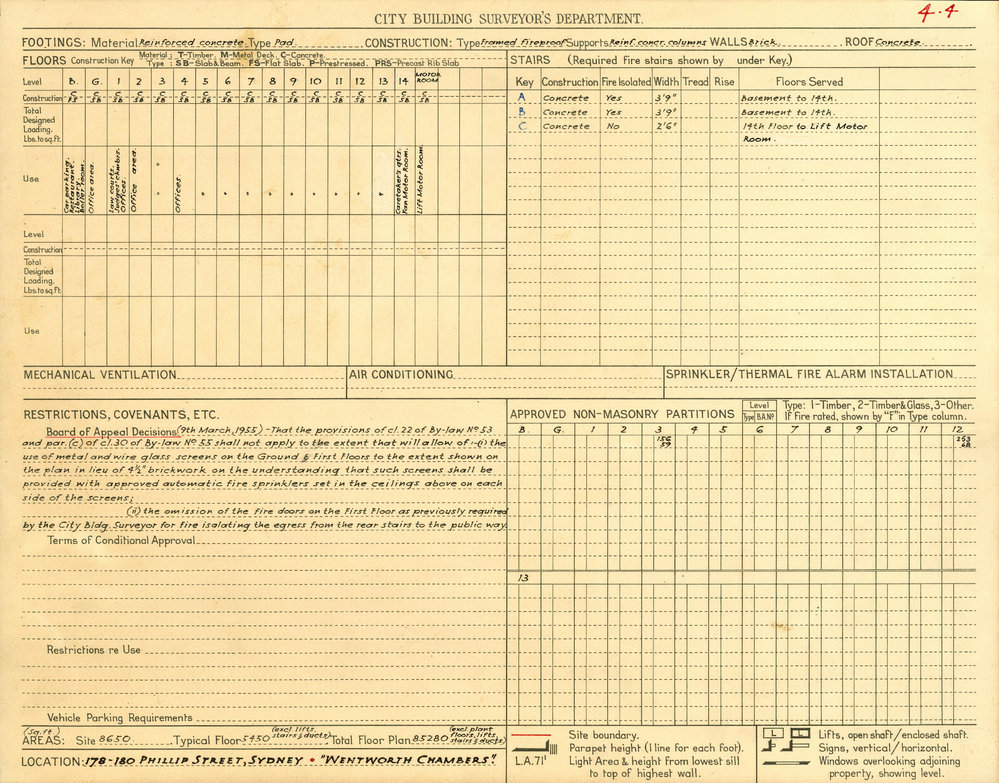 CITY BUILDING SURVEYOR'S DEPARTMENT.
4.4
FOOTINGS: Material Reinforced concrete Type Pad. CONSTRUCTION: Type Framed fireproof Supports Reinf. concr. columns WALLS Brick. ROOF Concrete.
FLOORS Construction Key Material: T-Timber. M-Metal Deck. C-Concrete.
Type: SB-Slab&Beam. FS-Flat Slab. P-Prestressed. PRS-Precast Rib Slab
Level B. G. 1 2 3 4 5 6 7 8 9 10 11 12 13 14 MOTOR ROOM
Construction C FS C SB C SB C SB C SB C SB C SB C SB C SB C SB C SB C SB C SB C SB C SB C SB C SB
Total
Designed
Loading.
Lbs. to sq. ft.
Use
Car parking.
Restaurant.
Library.
Boiler room.
Office area.
Law courts.
Judges' chmbrs.
Offices.
Office area.
"
Offices.
" " " " " " " " "
Caretaker's qtrs.
Fan Motor Room.
Lift Motor Room.
Level
Construction
Total
Designed
Loading.
Lbs. to sq. ft.
Use
STAIRS (Required fire stairs shown by under Key.)
Key Construction Fire Isolated Width Tread Rise Floors Served
A Concrete Yes 3'9" Basement to 14th.
B Concrete Yes 3'9" Basement to 14th.
C Concrete No 2'6" 14th Floor to Lift Motor
Room.
MECHANICAL VENTILATION
AIR CONDITIONING
SPRINKLER/THERMAL FIRE ALARM INSTALLATION
RESTRICTIONS, COVENANTS, ETC.
Board of Appeal Decisions (9th March, 1955) - That the provisions of cl. 22 of By-law No 53
and par. (c) of cl. 30 of By-law No 55 shall not apply to the extent that will allow of :-(i) the
use of metal and wire glass screens on the Ground & First Floors to the extent shown on
the plan in lieu of 4½" brickwork on the understanding that such screens shall be
provided with approved automatic fire sprinklers set in the ceilings above on each
side of the screens;
(ii) the omission of the fire doors on the First Floor as previously required
by the City Bldg. Surveyor for fire isolating the egress from the rear stairs to the public way.
Terms of Conditional Approval
Restrictions re Use
Vehicle Parking Requirements
APPROVED NON-MASONRY PARTITIONS
Level
Type B.A.No
Type: 1-Timber, 2-Timber&Glass, 3-Other.
If Fire rated, shown by "F" in Type column.
B. G. 1 2 3 4 5 6 7 8 9 10 11 12
156
59
253
68
13
AREAS: (Sq. ft) Site 8650. Typical Floor 5450 (excl. lifts, stairs & ducts) Total Floor Plan 85280 (excl. plant floors, lifts, stairs & ducts)
LOCATION: 178-180 PHILLIP STREET, SYDNEY • "WENTWORTH CHAMBERS".
Site boundary.
Parapet height (1 line for each foot).
L.A. 71' Light Area & height from lowest sill
to top of highest wall.
L
L
Lifts, open shaft/enclosed shaft.
Signs, vertical/horizontal.
Windows overlooking adjoining
property, showing level.